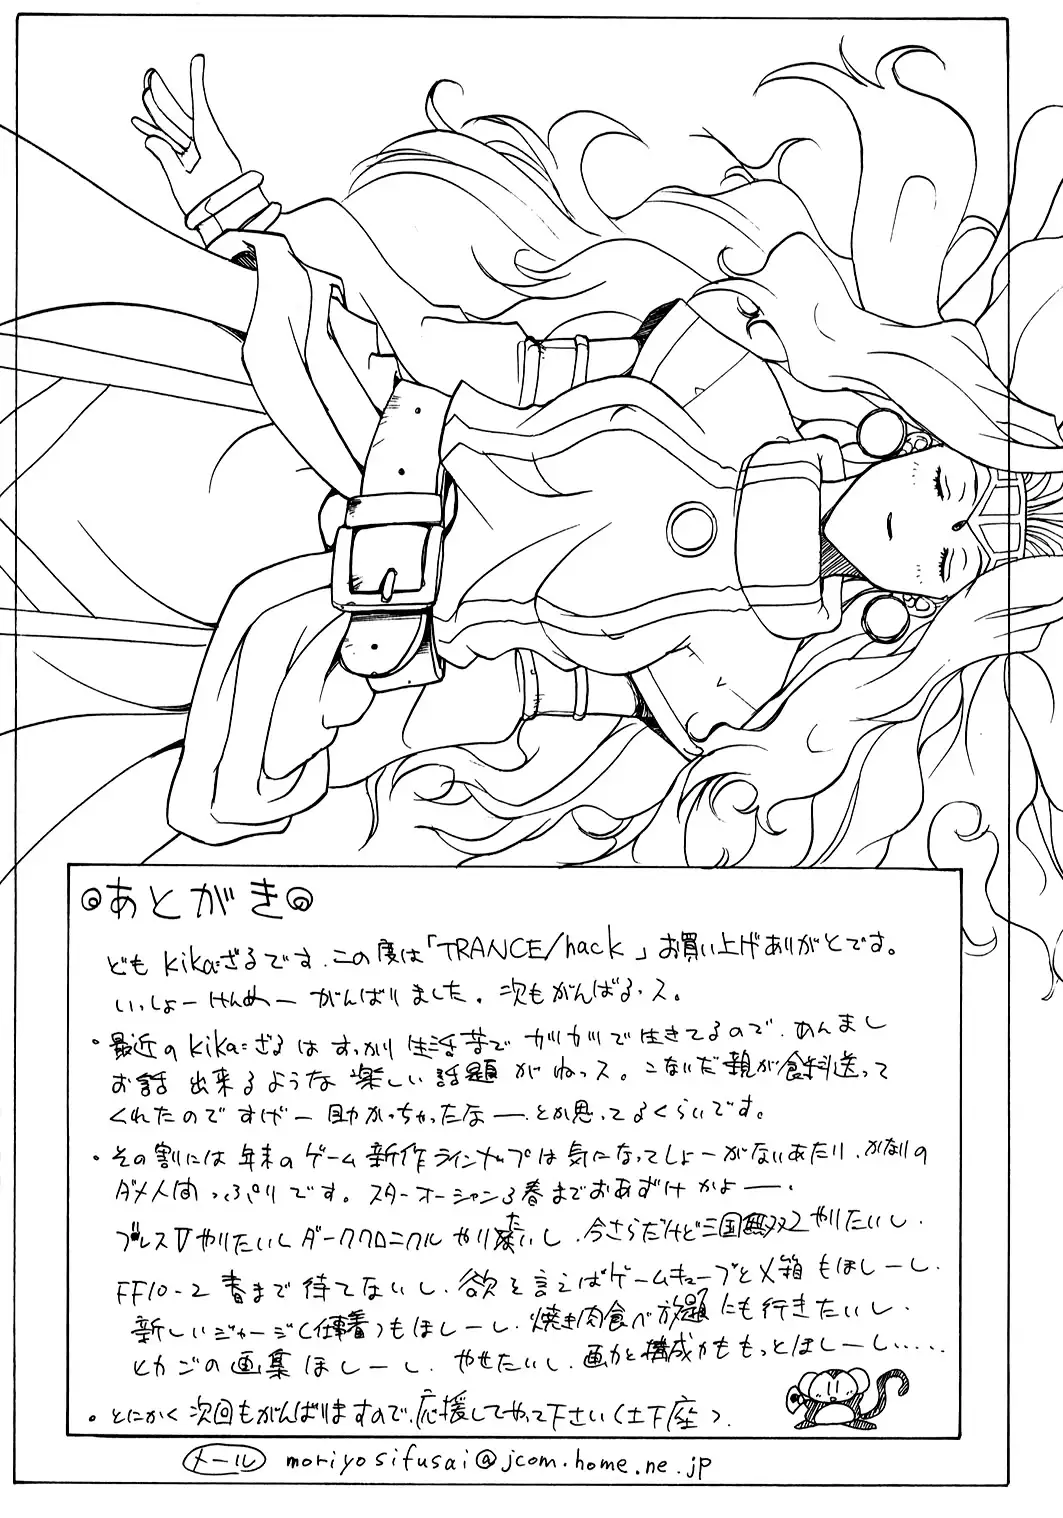 あとがき
どもkikaざるです。この度は「TRANCE/hack」お買い上げありがとです。
いっしょーけんめーがんばりました。次もがんばる.ス。
・最近のkikaざるはすっかり生活苦でガリガリで生きてるので、あんまし
お話出来るような楽しい話題がねっス。こないだ親が食料送って
くれたのですげー助かっちゃったなー―.とか思ってるくらいです。
・その割には年末のゲーム新作ラインナップは気になってしょーがないあたり、かなりの
ダメ人間っぷりです。スターオーシャン3春までおあずけかよ――.
ブレスⅤやりたいしダークロニクルやりたいし.今さらだけど三国無双2やりたいし.
FF10-2春まで待てないし.欲を言えばゲームキューブとX箱もほしーし.
新しいジャージ(仕事着)もほしーし.焼き肉食べ放題にも行きたいし.
の画集ほしーし.やせたいし.画力と構成力ももっとほしーし.....
・とにかく次回もがんばりますので、応援してやって下さい(土下座).
メール moriyosifusai@jcom.home.ne.jp